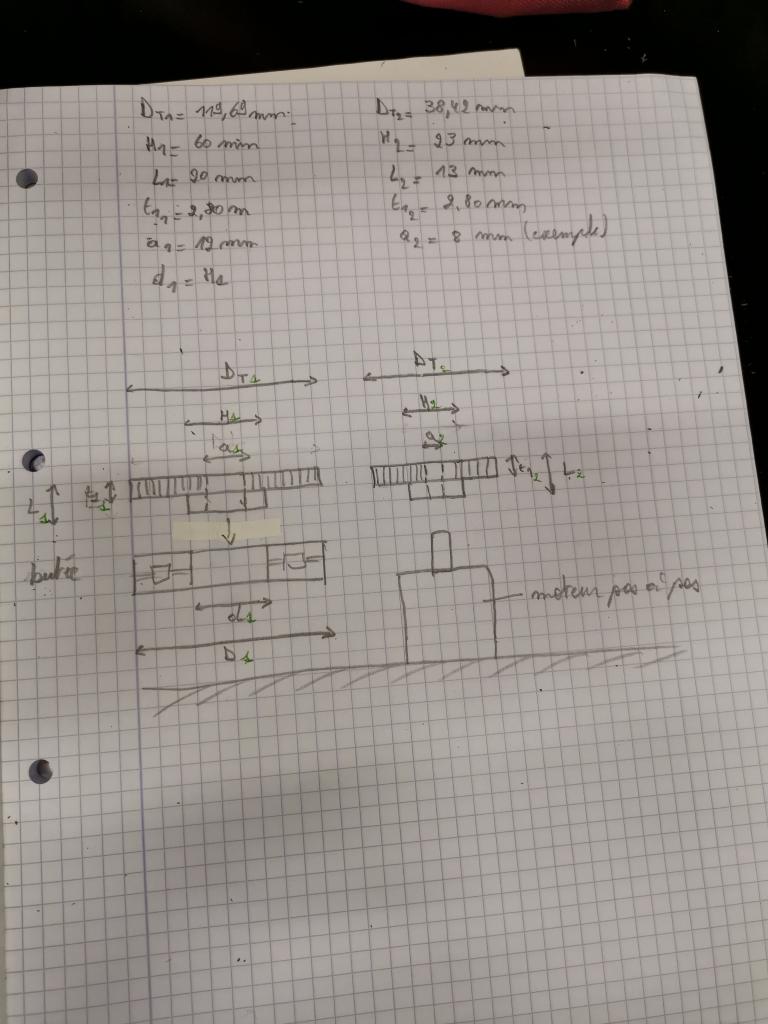 DT1 = 119,69 mm
H1 = 60 mm
L1 = 20 mm
t11 = 2,80 m
a1 = 12 mm
d1 = H1
DT2 = 38,42 mm
H2 = 23 mm
L2 = 13 mm
t12 = 2,80 mm
a2 = 8 mm (exemple)
DT1
H1
a1
L1
t11
DT2
H2
a2
t12
L2
butée
d1
D1
moteur pas à pas